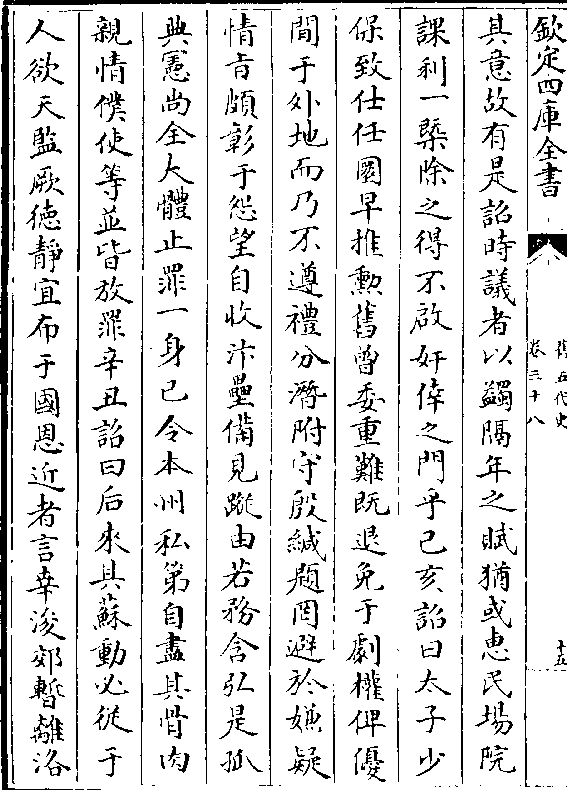 欽定四庫全書
舊五代史
卷三十八
十五
其意故有是詔時議者以蠲隔年之賦猶或惠民場院
課利一槩除之得不啟奸倖之門乎己亥詔曰太子少
保致仕任圜早推勲舊曾委重難既退免于劇權俾優
閒于外地而乃不遵禮分潛附守殷緘題罔避於嫌疑
情旨頗彰于怨望自收汴壘備見蹤由若務含弘是孤
典憲尚全大體止罪一身已令本州私第自盡其骨肉
親情僕使等並皆放罪辛丑詔曰后來其蘇動必從于
人欲天監厥徳靜宜布于國恩近者言幸浚郊暫離洛